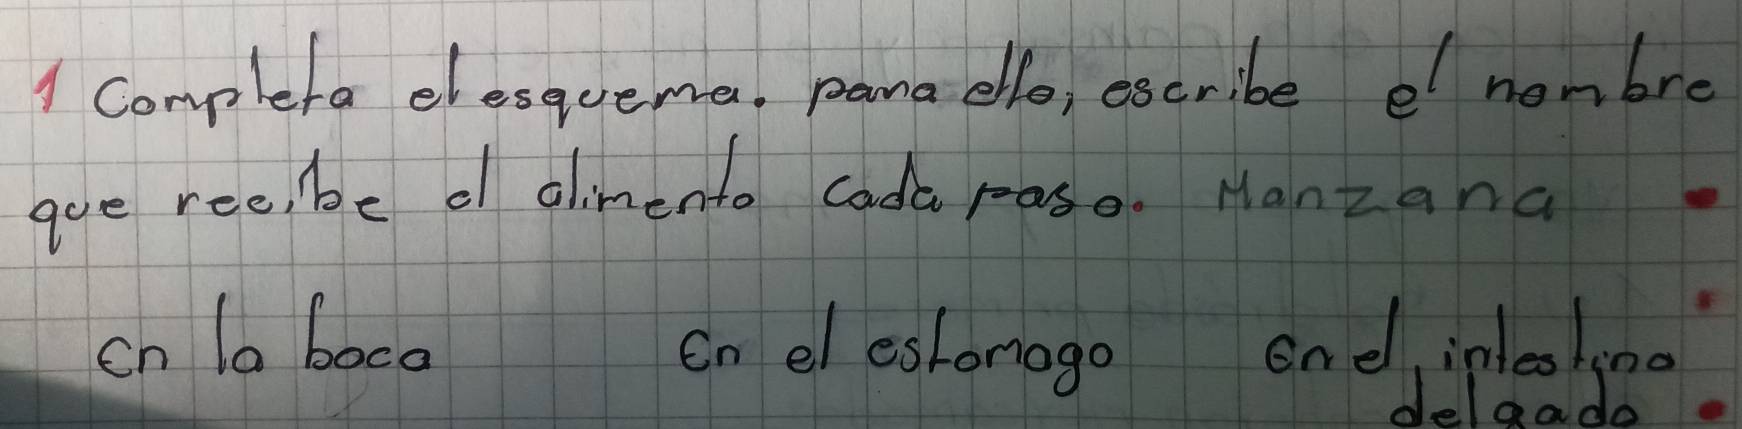 1 Completa el esquema. pana ello, escribe el nombre
que reeibe el alimento cada paso. Manzana
En la boca En el estomago En el intestino
delgado